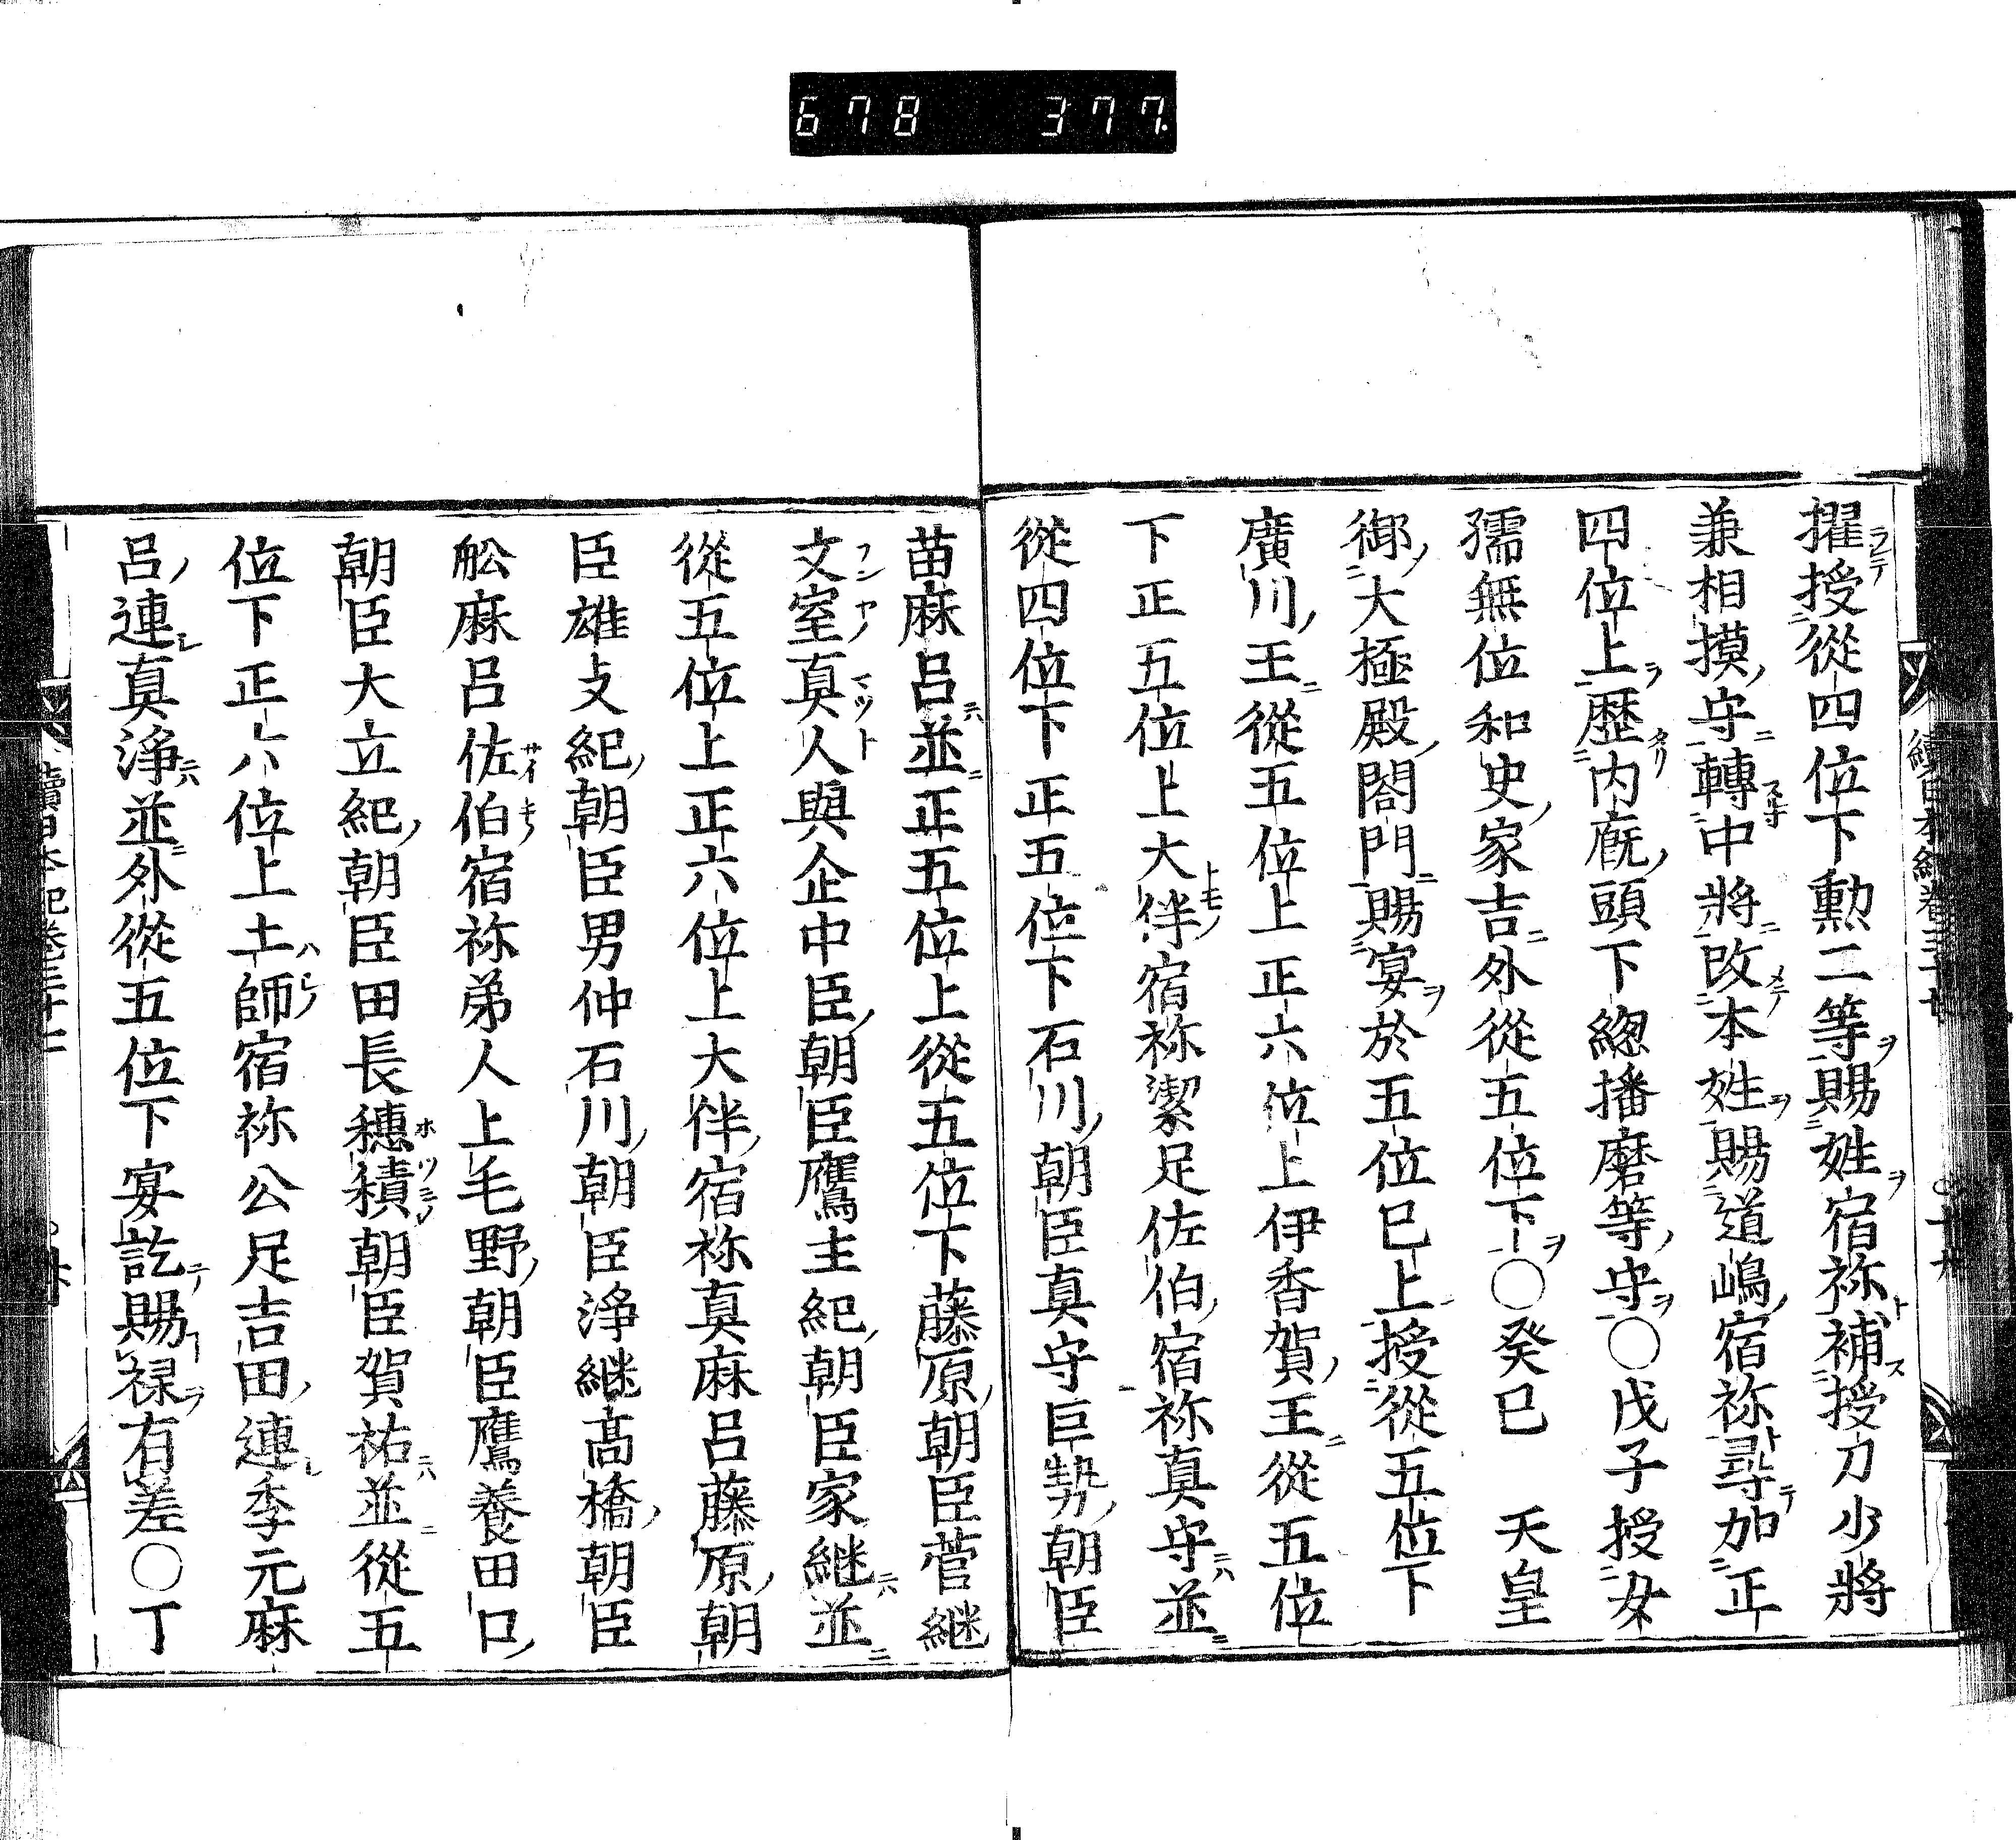 678 377.
擢授從四位下勳二等賜姓宿祢補授刀少將
兼相摸守轉中將改本姓賜道嶋宿祢尋加正
四位上歴内厩頭下緫播磨等守○戊子授女
孺無位和史家吉外從五位下○癸巳 天皇
御大極殿閤門賜宴於五位已上授從五位下
廣川王從五位上正六位上伊香賀王從五位
下正五位上大伴宿祢潔足佐伯宿祢真守並
從四位下正五位下石川朝臣真守巨勢朝臣
苗麻呂並正五位上從五位下藤原朝臣菅継
文室真人與企中臣朝臣鷹主紀朝臣家継並
從五位上正六位上大伴宿祢真麻呂藤原朝
臣雄攴紀朝臣男仲石川朝臣淨継髙橋朝臣
舩麻呂佐伯宿祢弟人上毛野朝臣鷹養田口
朝臣大立紀朝臣田長穗積朝臣賀祐並從五
位下正六位上土師宿祢公足吉田連季元麻
呂連真淨並外從五位下宴訖賜禄有差○丁